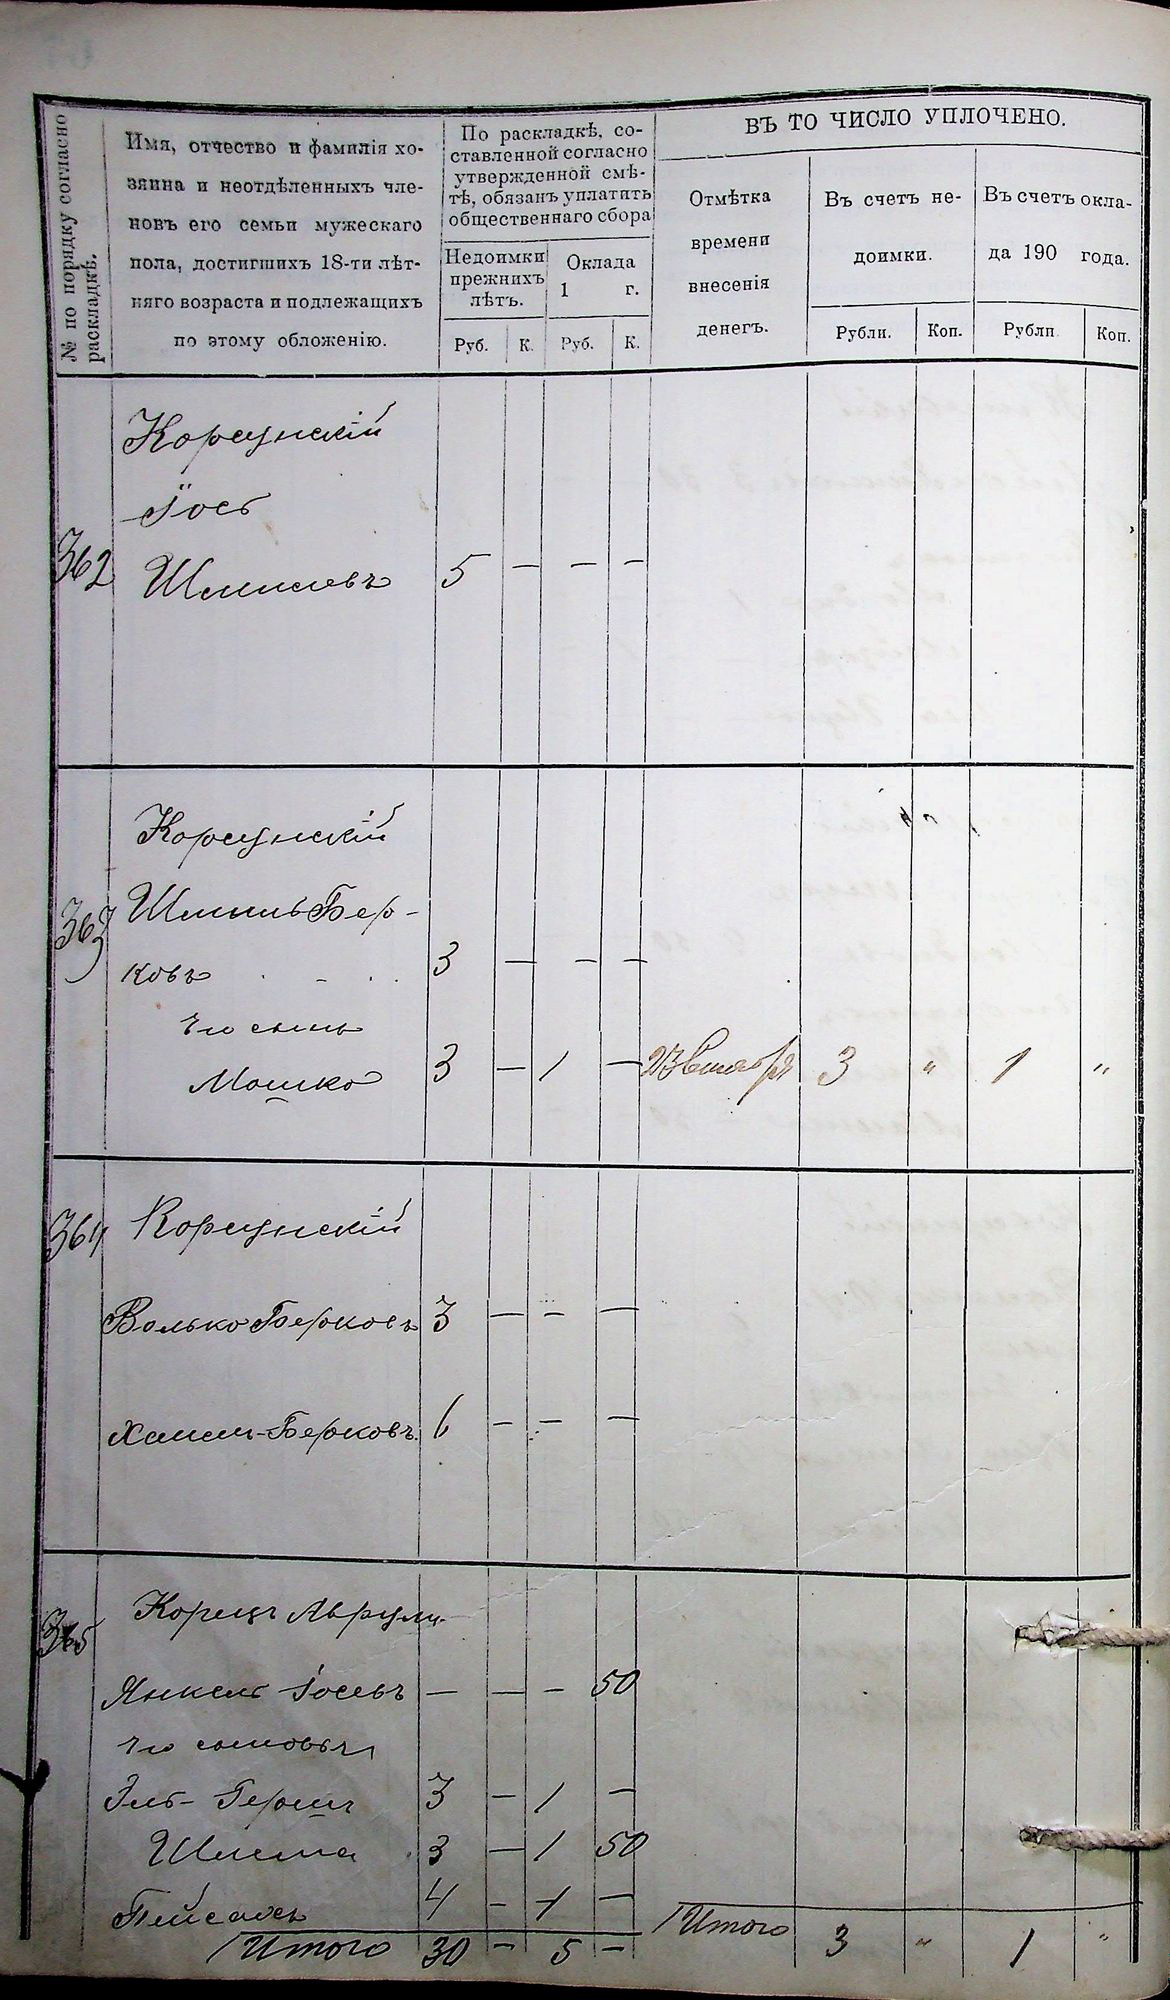 № по порядку согласно раскладкѣ.
Имя, отчество и фамилія хо-
зяина и неотдѣленныхъ чле-
новъ его семьи мужескаго
пола, достигшихъ 18-ти лѣт-
няго возраста и подлежащихъ
по этому обложенію.
По раскладкѣ, со-
ставленной согласно
утвержденной смѣ-
тѣ, обязанъ уплатить
общественнаго сбора
Недоимки прежнихъ лѣтъ.
Оклада 1 г.
Руб. К. Руб. К.
ВЪ ТО ЧИСЛО УПЛОЧЕНО.
Отмѣтка
времени
внесенія
денегъ.
Въ счетъ не-
доимки.
Рубли. Коп.
Въ счетъ окла-
да 190 года.
Рубли Коп.
Корсунскій
Іось
362 Шмилевъ 5 — — —
Корсунскій
363 Шмиль Бер-
ковъ 3 — — —
его сынъ
Мошко 3 — 1 — 23 Октября 3 " 1 "
364 Корсунскій
Волько Берковъ 3 — — —
Хаимъ-Берковъ 6 — — —
365 Корецъ Аврумъ
Янкель Іосевъ — — — 50
его сыновья
Эль-Гершъ 3 — 1 —
Шлема 3 — 1 50
Пейсахъ 4 — 1 —
Итого 30 — 5 — Итого 3 " 1 "